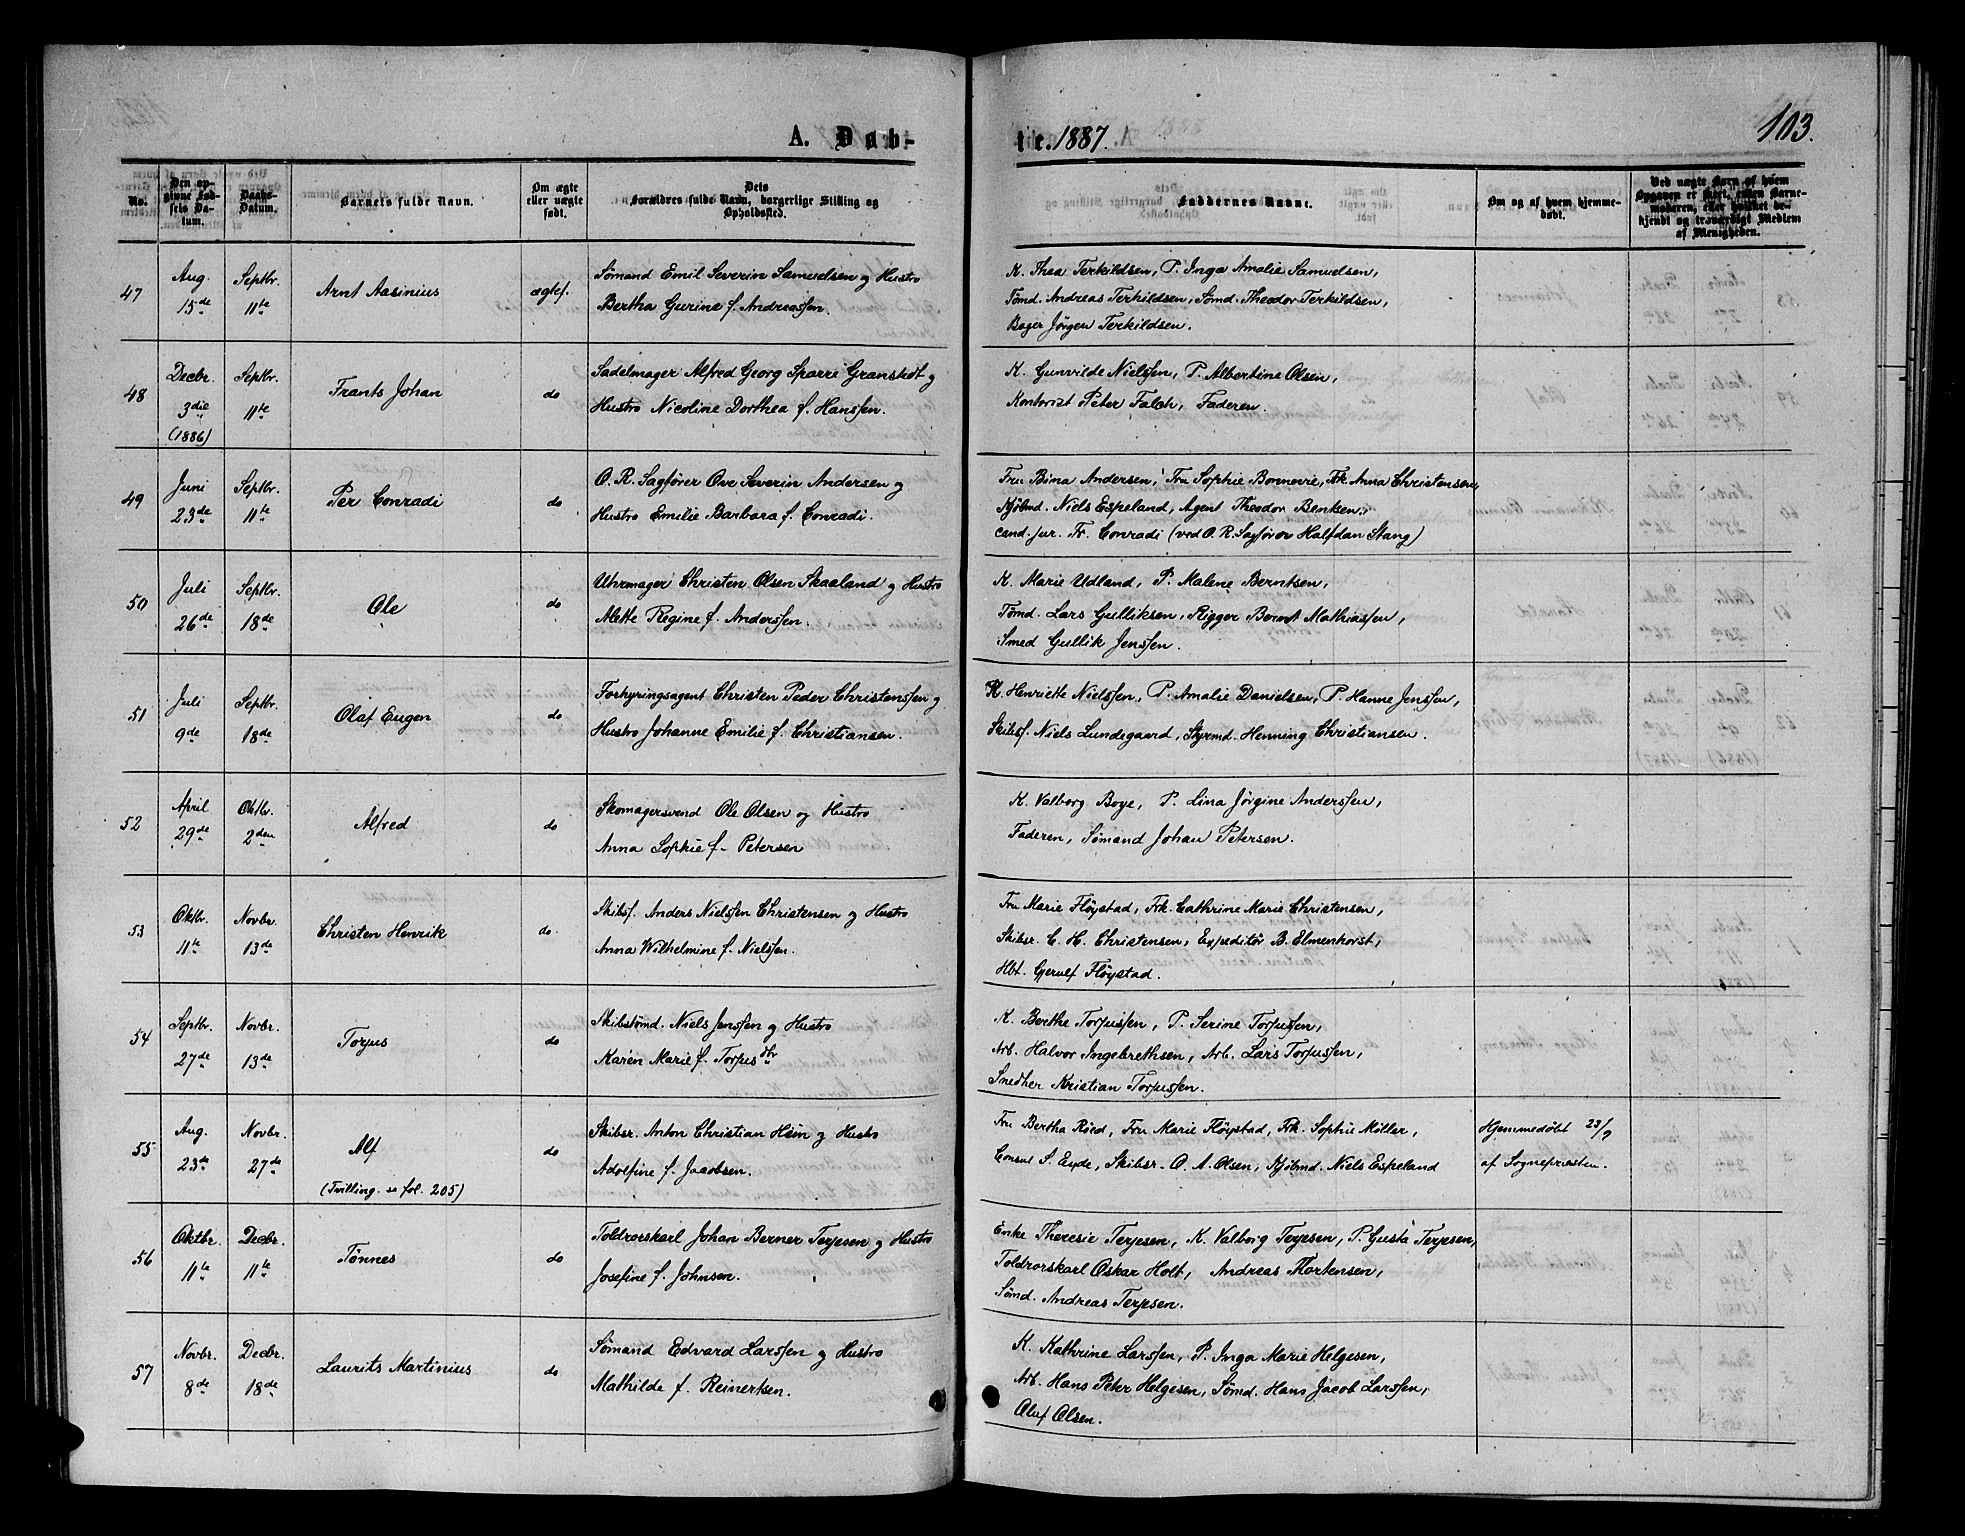 A. Døb-
te. 1887.
103.
No.
Den op-
givne Fød-
sels Da-
tum.
Daabs-
Datum.
Barnets fulde Navn.
Om ægte
eller uægte
født.
Dets
Forældres fulde Navn, borgerlige Stilling og
Opholdssted.
Faddernes Navne.
Om og af hvem hjemme-
døbt.
Ved uægte Børn af hvem
Opgaven er skeet, enten Barne-
moderen, eller hvilket be-
kjendt og troværdigt Medlem
af Menigheden.
47
Aug.
15de
Septbr.
11te
Arnt Aasinius
ægtef.
Sømand Emil Severin Samuelsen og Hustro
Bertha Gurine f. Andreassen.
K. Thea Terkildsen, P. Inga Amalie Samuelsen,
Tømd. Andreas Terkildsen, Sømd. Theodor Terkildsen,
Bager Jørgen Terkildsen.
48
Decbr.
3die
(1886)
Septbr.
11te
Frants Johan
do
Sadelmager Alfred Georg Sparre Granskot og
Hustro Nicoline Dorthea f. Hanssen.
K. Gunvilde Nielssen, P. Albertine Olsen,
Kontorist Peter Falch, Faderen.
49
Juni
23de
Septbr.
11te
Per Conradi
do
O. R. Sagfører Ove Severin Andersen og
Hustro Emilie Barbara f. Conradi.
Fru Bina Andersen, Fru Sophie Bonnevie, Frk. Anna Christensen,
Kjøbmd. Niels Espeland, Agent Theodor Bentsen,
cand. jur. Fr. Conradi (ved O. R. Sagfører Halfdan Stang)
50
Juli
26de
Septbr.
18de
Ole
do
Uhrmager Christen Olsen Skaaland og Hustro
Alette Regine f. Anderssen.
K. Marie Udland, P. Malene Berntsen,
Tømd. Lars Gulliksen, Rigger Bernt Mathiassen,
Smed Gullik Jenssen.
51
Juli
9de
Septbr.
18de
Olaf Eugen
do
Forhyringsagent Christen Peder Christenssen og
Hustro Johanne Emilie f. Christiansen.
K. Henriette Nielssen, P. Amalie Danielsen, P. Hanne Jenssen,
Skibsf. Niels Lundegaard, Styrmd. Henning Christiansen.
52
April
29de
Oktbr.
2den
Alfred
do
Skomagersvend Ole Olsen og Hustro
Anna Sophie f. Petersen
K. Valborg Boye, P. Lina Jørgine Anderssen,
Faderen, Sømand Johan Petersen.
53
Oktbr.
11te
Novbr.
13de
Christen Henrik
do.
Skibsf. Anders Nielssen Christensen og Hustro
Anna Wilhelmine f. Nielssen.
Fru Marie Fløystad, Frk. Cathrine Marie Christensen,
Skibsr. C. H. Christensen, Expeditør B. Elmenhorst,
Hbt. Gerulf Fløystad.
54
Septbr.
27de
Novbr.
13de
Torjus
do
Skibstømd. Niels Jenssen og Hustro
Karen Marie f. Torjusdtr
K. Berthe Torjussen, P. Serine Torjussen,
Arb. Halvor Ingebrethsen, Arb. Lars Torjussen,
Snedker Kristian Torjussen.
55
Aug.
23de
Novbr.
27de
Alf
(Tvilling. se fol. 205)
do
Skibsr. Anton Christian Hein og Hustro
Adolfine f. Jacobsen.
Fru Bertha Röed, Fru Marie Fløystad, Frk. Sophie Møller,
Consul S. Eyde, Skibsr. O. A. Olsen, Kjøbmd. Niels Espeland
Hjemmedøbt 23/9
af Sognepræsten.
56
Oktbr.
11te
Decbr.
11te
Tønnes
do
Toldrorskarl Johan Berner Terjesen og Hustro
Josefine f. Johnsen.
Enke Theresie Terjesen, K. Valborg Terjesen, P. Gusta Terjesen,
Toldrorskarl Oskar Holt, Andreas Mortensen,
Sømd. Andreas Terjesen.
57
Novbr.
8de
Decbr.
18de
Laurits Martinius
do
Sømand Edvard Larssen og Hustro
Mathilde f. Reinertsen.
K. Kathrine Larssen, P. Inga Marie Helgesen,
Arb. Hans Peter Helgesen, Sømd. Hans Jacob Larssen,
Oluf Olsen.